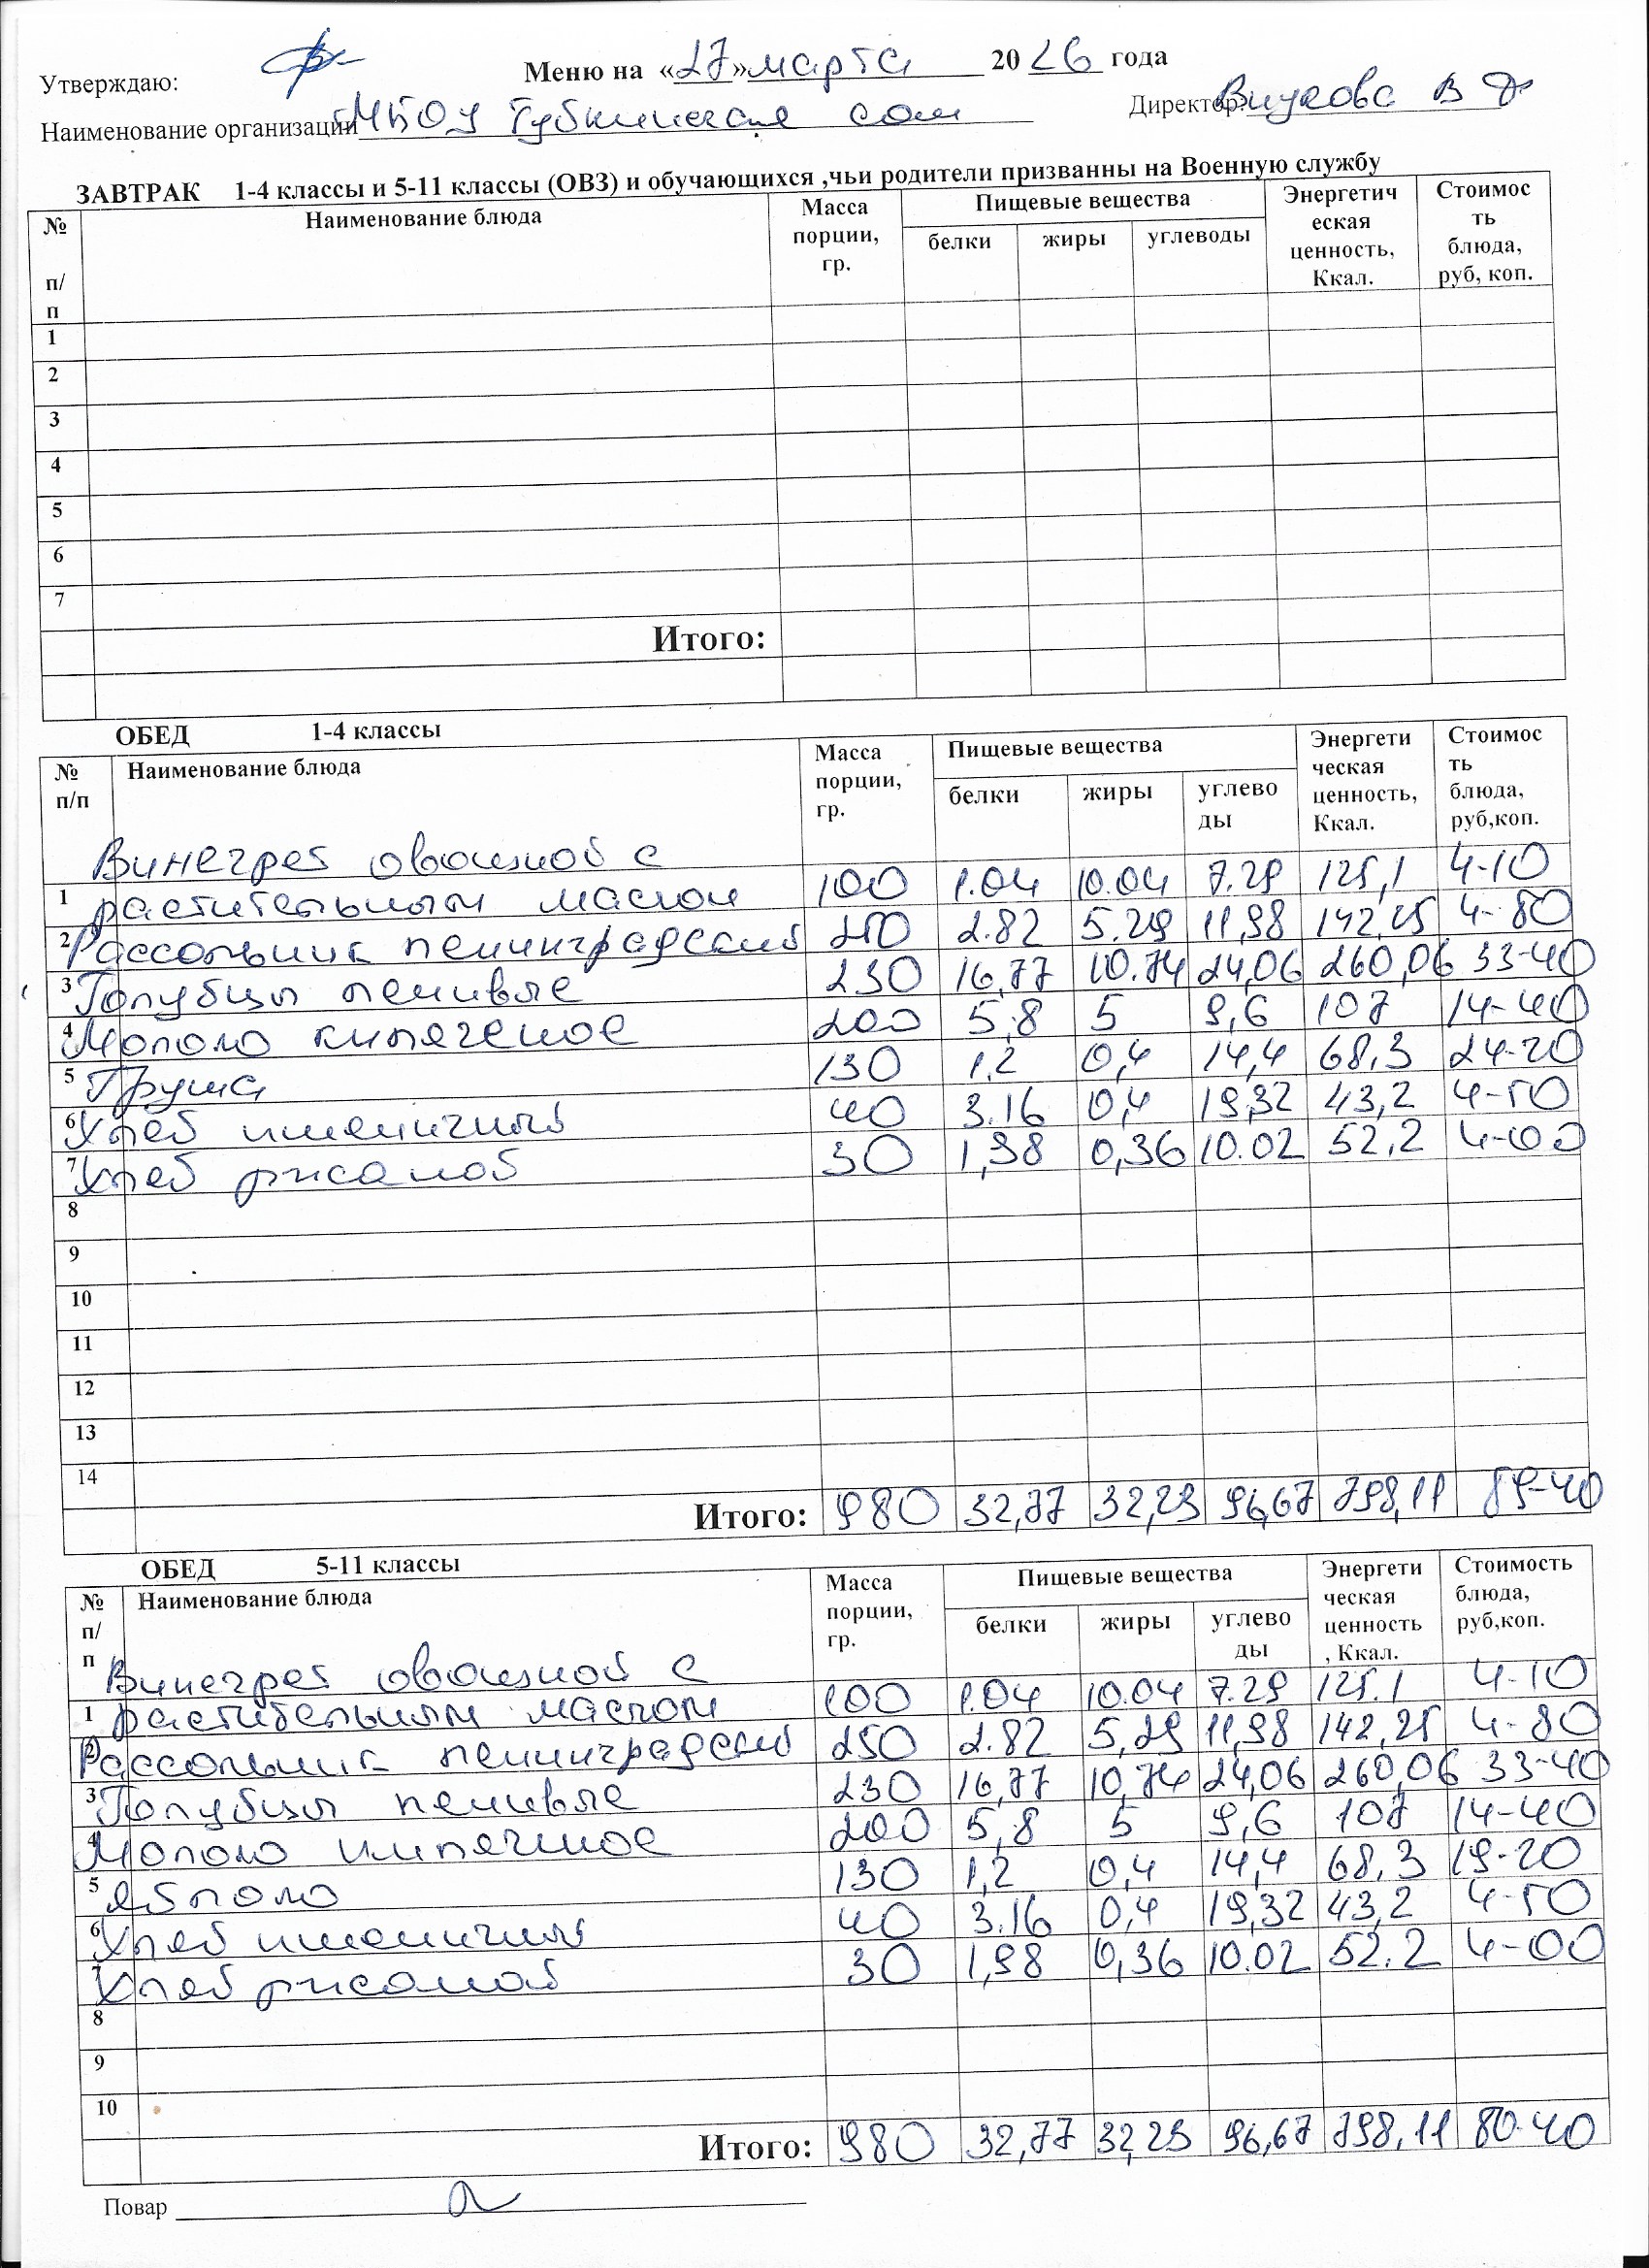 Утверждаю:
Меню на «27» марта 2026 года
Наименование организации МБОУ Губкинская сош Директор: В
ЗАВТРАК 1-4 классы и 5-11 классы (ОВЗ) и обучающихся ,чьи родители призванны на Военную службу
№ п/п Наименование блюда Масса порции, гр. Пищевые вещества белки жиры углеводы Энергетич еская ценность, Ккал. Стоимос ть блюда, руб, коп.
1
2
3
4
5
6
7
Итого:
ОБЕД 1-4 классы
№ п/п Наименование блюда Масса порции, гр. Пищевые вещества белки жиры углево ды Энергети ческая ценность, Ккал. Стоимос ть блюда, руб,коп.
Винегрет овощной с
1 растительным маслом 100 1.04 10.04 7.29 125,1 4-10
2 Рассольник ленинградский 250 2.82 5.29 11,98 142,25 4-80
3 Голубцы ленивые 230 16,77 10.74 24,06 260,06 33-40
4 Молоко кипяченое 200 5,8 5 9,6 107 14-40
5 Груша 130 1.2 0,4 14,4 68,3 24-20
6 Хлеб пшеничный 40 3.16 0,4 19,32 43,2 4-50
7 Хлеб ржаной 30 1,98 0,36 10.02 52,2 4-00
8
9
10
11
12
13
14
Итого: 980 32,77 32,23 96,67 798,11 89-40
ОБЕД 5-11 классы
№ п/п Наименование блюда Масса порции, гр. Пищевые вещества белки жиры углево ды Энергети ческая ценность , Ккал. Стоимость блюда, руб,коп.
Винегрет овощной с
1 растительным маслом 100 1.04 10.04 7.29 125.1 4-10
2 Рассольник ленинградский 250 2.82 5,29 11,98 142,25 4-80
3 Голубцы ленивые 230 16,77 10,74 24,06 260,06 33-40
4 Молоко кипяченое 200 5,8 5 9,6 107 14-40
5 яблоко 130 1,2 0,4 14,4 68,3 19-20
6 Хлеб пшеничный 40 3.16 0,4 19,32 43,2 4-50
7 Хлеб ржаной 30 1,98 0,36 10.02 52.2 4-00
8
9
10
Итого: 980 32,77 32,23 96,67 798,11 80-40
Повар